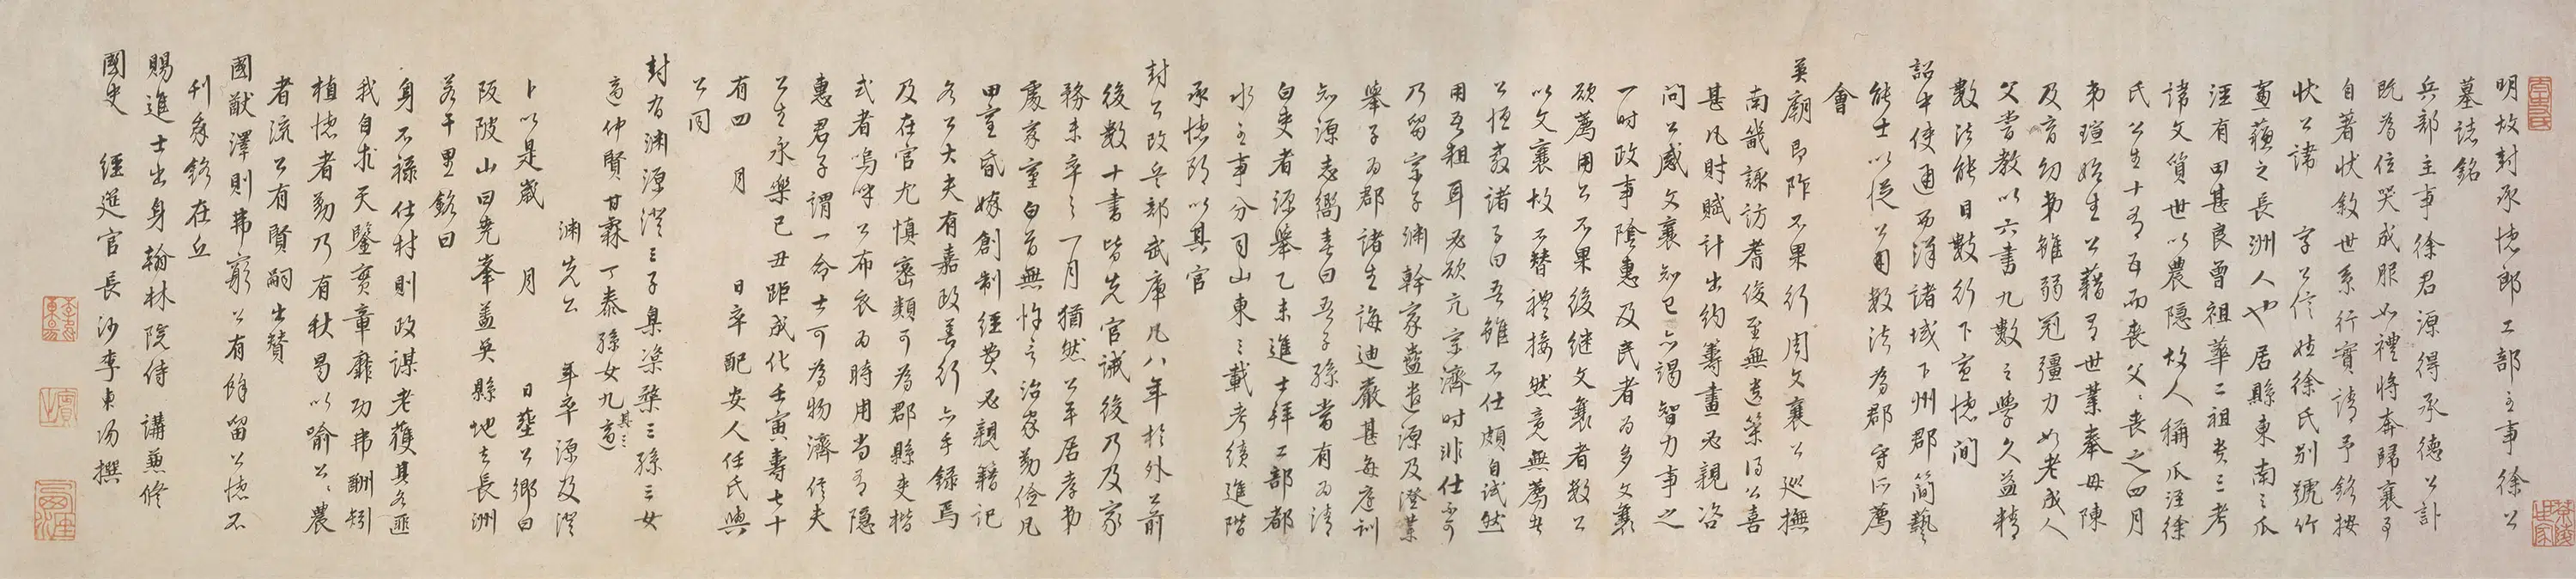 明故封承德郎工部主事徐公
墓誌銘
兵部主事徐君源得承德公訃
既為位哭成服如禮將奔歸襄事
自著狀敘世系行實請予銘按
狀公諱 字公信姓徐氏別號竹
窗蘇之長洲人也居縣東南之瓜
涇有田甚良曾祖華二祖考三考
諱文質世以農隱故人稱瓜涇徐
氏公生十有五而喪父父喪之四月
弟瑄始生公藉有世業奉母陳
及育幼弟雖弱冠彊力如老成人
父嘗教以六書九數之學久益精
數法能目數行下宣德間
詔中使通西洋諸域下州郡簡藝
能士以從公用數法為郡守所薦
會
英廟即阼不果行周文襄公巡撫
南畿諏訪耆俊至無遺策得公喜
甚凡財賦計出約籌畫必親咨
問公感文襄知己亦竭智力事之
一時政事陰惠及民者為多文襄
欲薦用公不果後继文襄者數公
以文襄故不替禮接然竟無薦者
公恒教諸子曰吾雖不仕頗自試然
用吾粗耳必欲亢宗濟時非仕不可
乃留宗子淵幹家蠱遣源及澄業
舉子為郡諸生誨迪嚴甚每庭訓
知源志嚮喜曰吾子孫當有為清
白吏者源舉乙未進士拜工部都
水主事分司山東三載考績進階
承德郎以其官
封公改兵部武庫凡八年於外公前
後數十書皆先官誡後乃及家
務未卒之一月猶然公平居孝弟
處家室白首無忤言治家勤儉凡
田室昏嫁創制經費必親籍記
名公大夫有嘉政善行亦手錄焉
及在官尤慎密類可為郡縣吏楷
式者嗚呼公布衣為時用尚有隱
惠君子謂一命士可為物濟信夫
公生永樂己丑距成化壬寅壽七十
有四 月 日卒配安人任氏與
公同
封有淵源澄三子臬澡檗三孫三女
適仲賢甘霖丁泰孫女九其三適
淵先公 年卒源及澄
卜以是歲 月 日葬公鄉曰
阪陂山曰堯峯蓋吳縣地去長洲
若干里銘曰
身不祿仕材則政謀老獲其名匪
我自求天鑒寔章靡功弗酬矧
植德者勤乃有秋曷以喻公公農
者流公有賢嗣出贊
國猷澤則弗窮公有餘留公德不
刊余銘在丘
賜進士出身翰林院侍 講兼修
國史 經筵官長沙李東陽撰